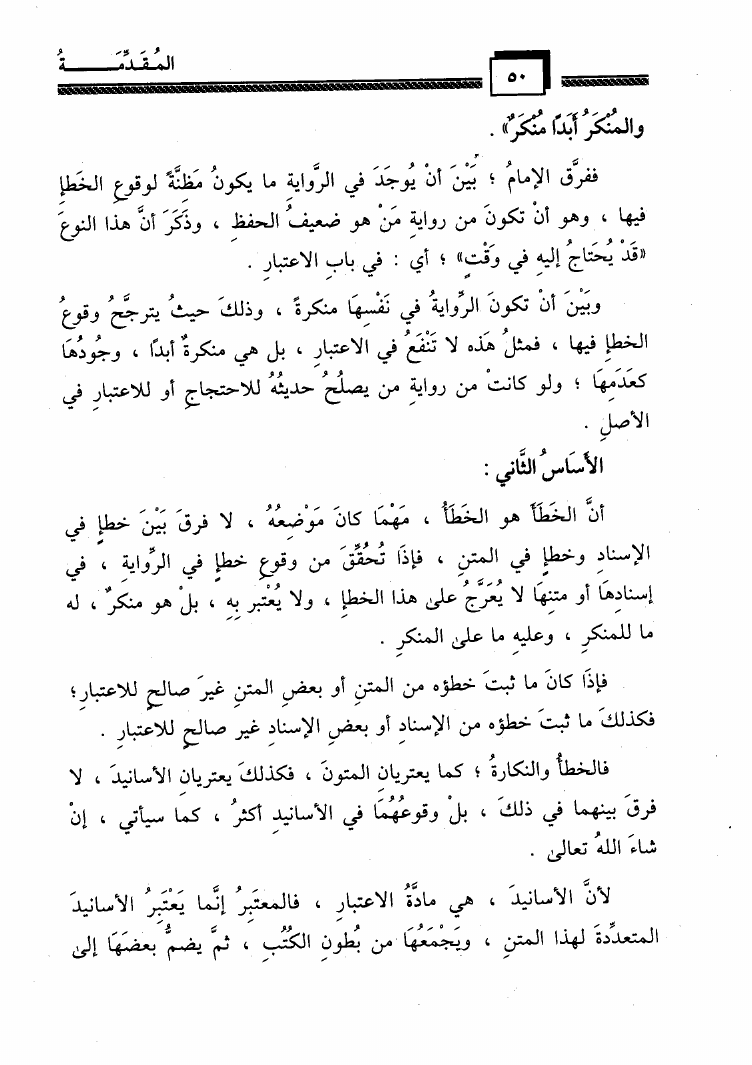 المُقَدِّمَـــــــةُ
٥٠
والمُنْكَرُ أَبَدًا مُنْكَرٌ» .
ففرَّق الإمامُ ؛ بَيْنَ أنْ يُوجَدَ في الرَّوايةِ ما يكونُ مَظِنَّةً لوقوعِ الخطإِ
فيها ، وهو أنْ تكونَ من روايةِ مَنْ هو ضعيفُ الحفظِ ، وذَكَرَ أنَّ هذا النوعَ
«قَدْ يُحتَاجُ إليهِ في وَقْتٍ» ؛ أي : في بابِ الاعتبارِ .
وبَيْنَ أنْ تكونَ الرِّوايةُ في نَفْسِهَا منكرةً ، وذلكَ حيثُ يترجَّحُ وقوعُ
الخطإِ فيها ، فمثلُ هَذه لا تَنْفَعُ في الاعتبارِ ، بل هي منكرةٌ أبدًا ، وجودُهَا
كعَدَمِهَا ؛ ولو كانتْ من روايةِ من يصلُحُ حديثُهُ للاحتجاجِ أو للاعتبارِ في
الأصلِ .
الأَسَاسُ الثَّاني :
أنَّ الخَطَأَ هو الخَطَأُ ، مَهْمَا كانَ مَوْضِعُهُ ، لا فرقَ بَيْنَ خطإٍ في
الإسنادِ وخطإٍ في المتنِ ، فإذَا تُحُقِّقَ من وقوعِ خطإٍ في الرِّوايةِ ، في
إسنادِهَا أو متنِهَا لا يُعَرَّجُ علىٰ هذا الخطإِ ، ولا يُعْتبر بِهِ ، بلْ هو منكرٌ ، له
ما للمنكرِ ، وعليهِ ما علىٰ المنكرِ .
فإذَا كانَ ما ثبتَ خطؤه من المتنِ أو بعضِ المتنِ غيرَ صالحٍ للاعتبارِ؛
فكذلكَ ما ثبتَ خطؤه من الإسنادِ أو بعضِ الإسنادِ غير صالحٍ للاعتبارِ .
فالخطأُ والنكارةُ ؛ كما يعتريانِ المتونَ ، فكذلكَ يعتريانِ الأسانيدَ ، لا
فرقَ بينهما في ذلكَ ، بلْ وقوعُهُمَا في الأسانيدِ أكثرُ ، كما سيأتي ، إنْ
شاءَ اللهُ تعالىٰ .
لأنَّ الأسانيدَ ، هي مادَّةُ الاعتبارِ ، فالمعتَبِرُ إنَّما يَعْتَبِرُ الأسانيدَ
المتعدِّدةَ لهذا المتنِ ، ويَجْمَعُهَا من بُطونِ الكُتُبِ ، ثمَّ يضمُّ بعضَهَا إلىٰ